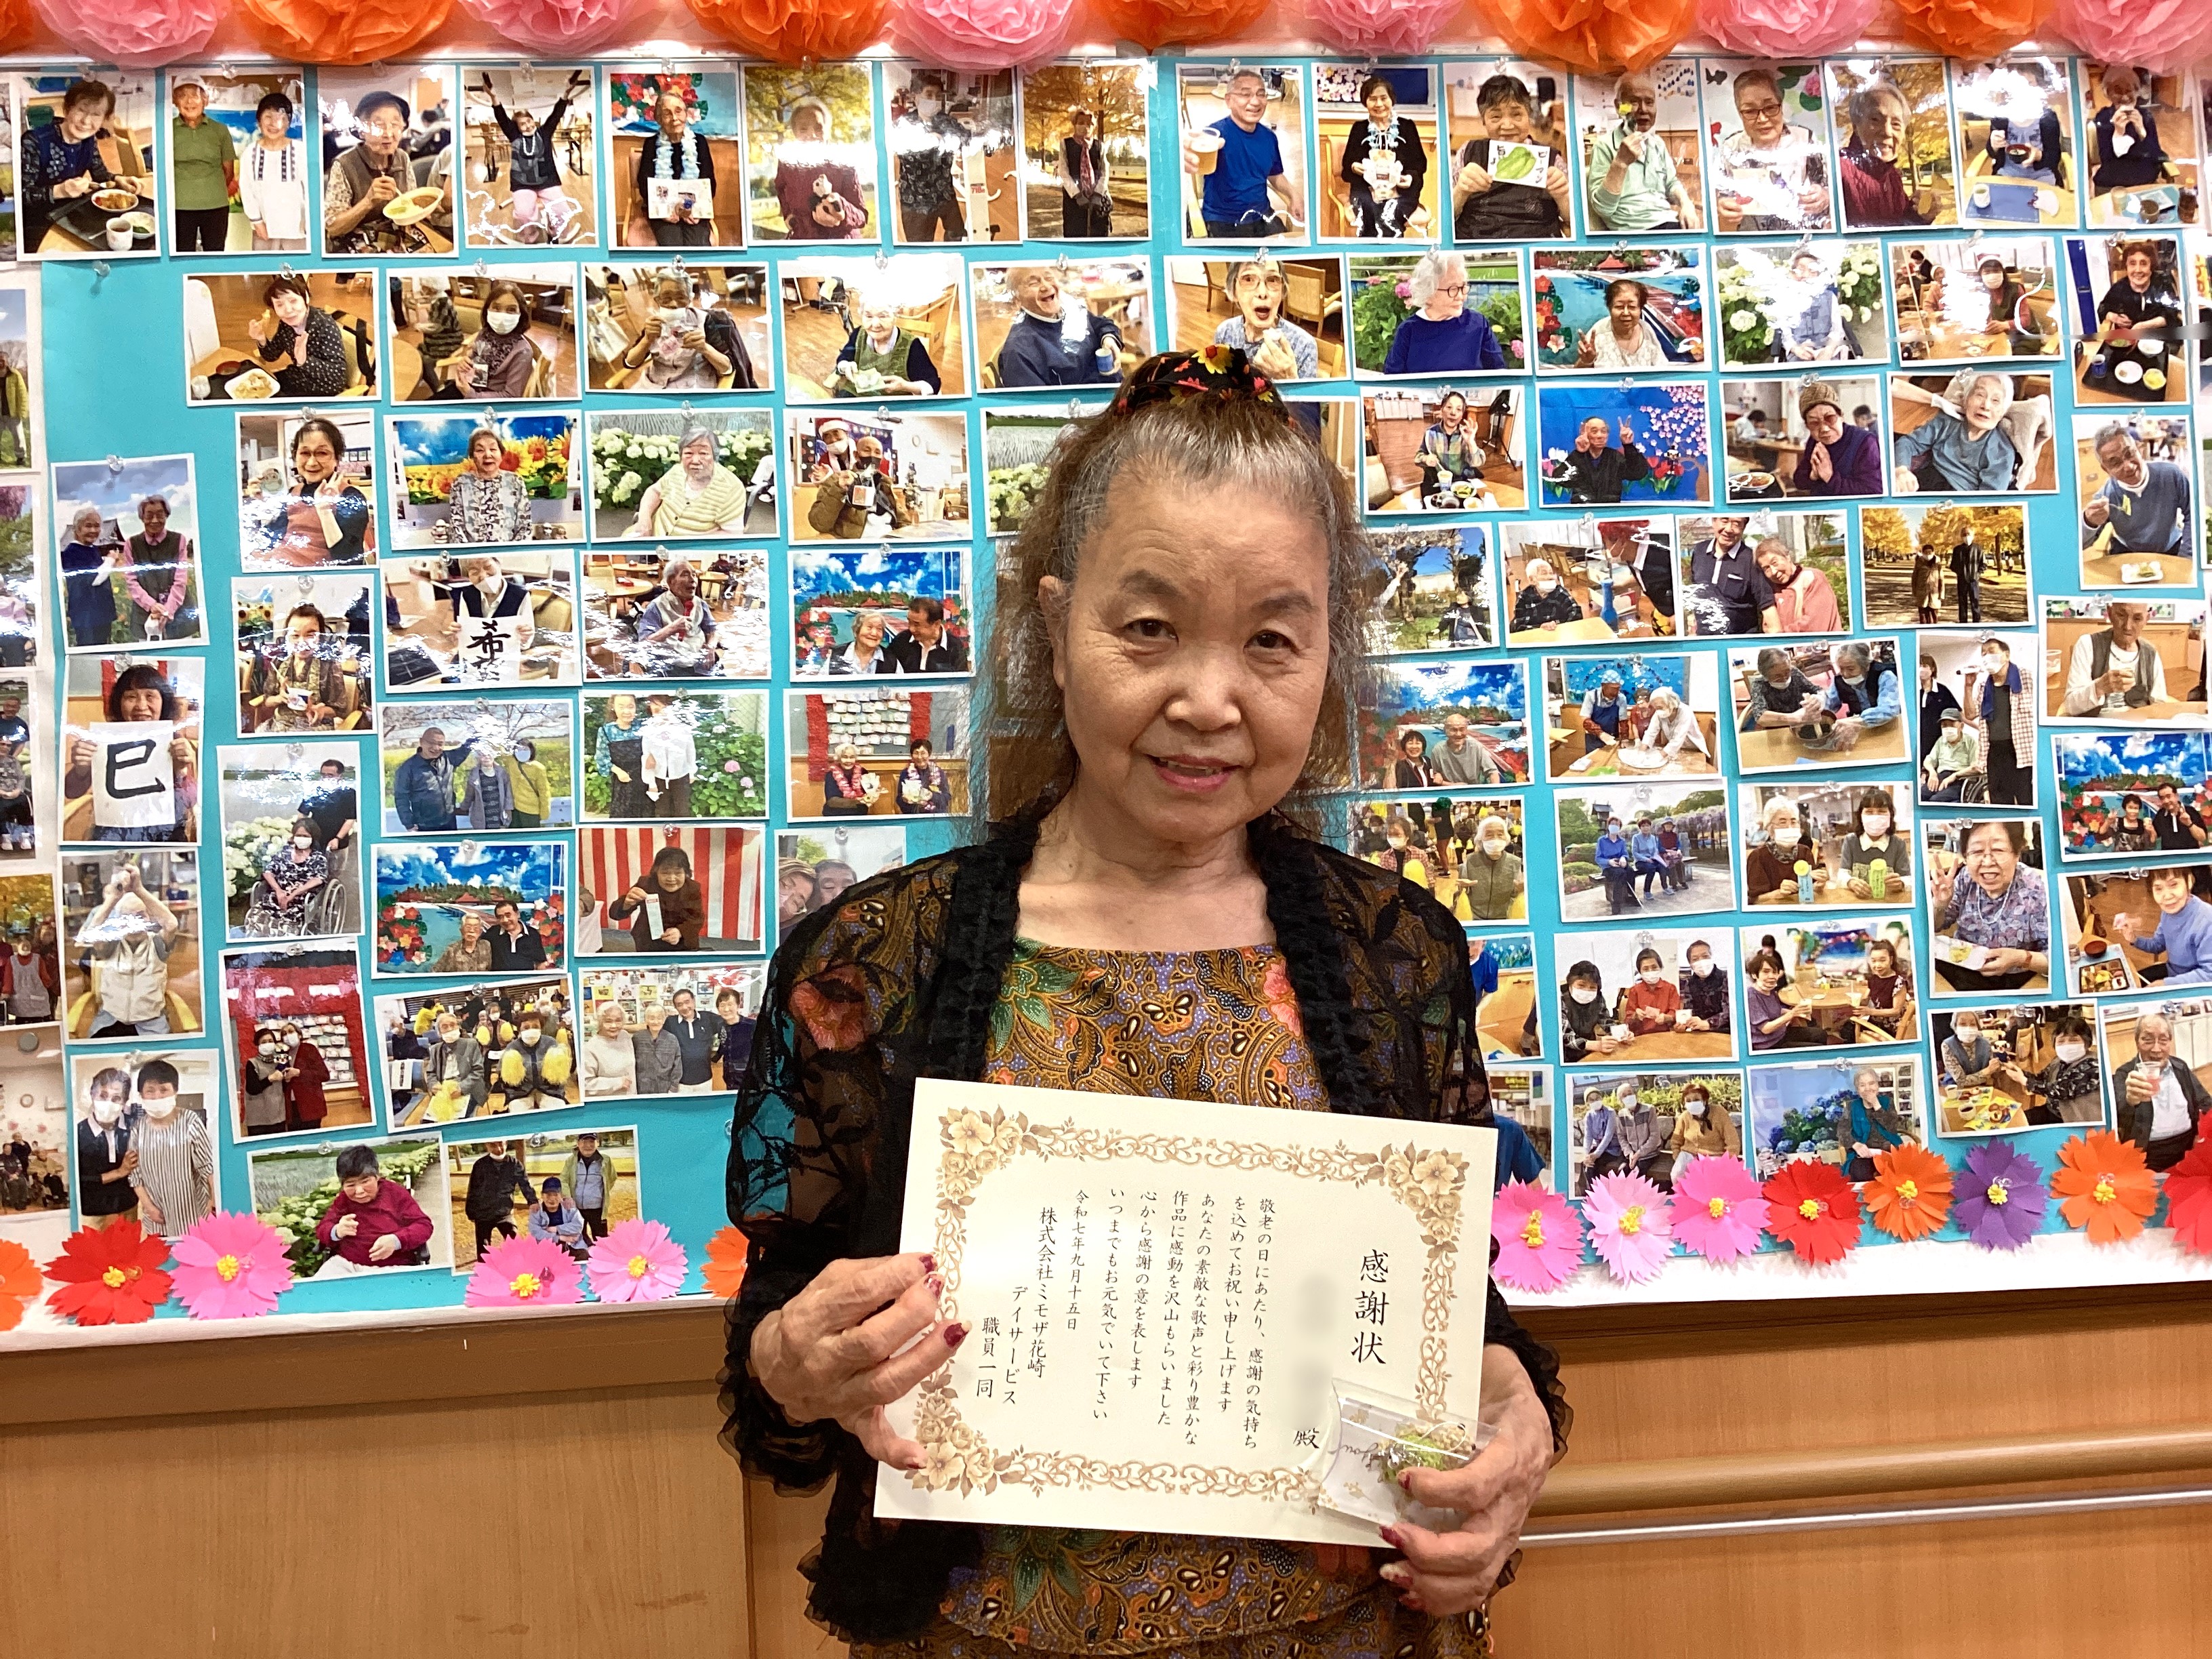 感謝状
殿
敬老の日にあたり、感謝の気持ち
を込めてお祝い申し上げます
あなたの素敵な歌声と彩り豊かな
作品に感動を沢山もらいました
心から感謝の意を表します
いつまでもお元気でいて下さい
令和七年九月十五日
株式会社ミモザ花崎
デイサービス
職員一同
巳
希